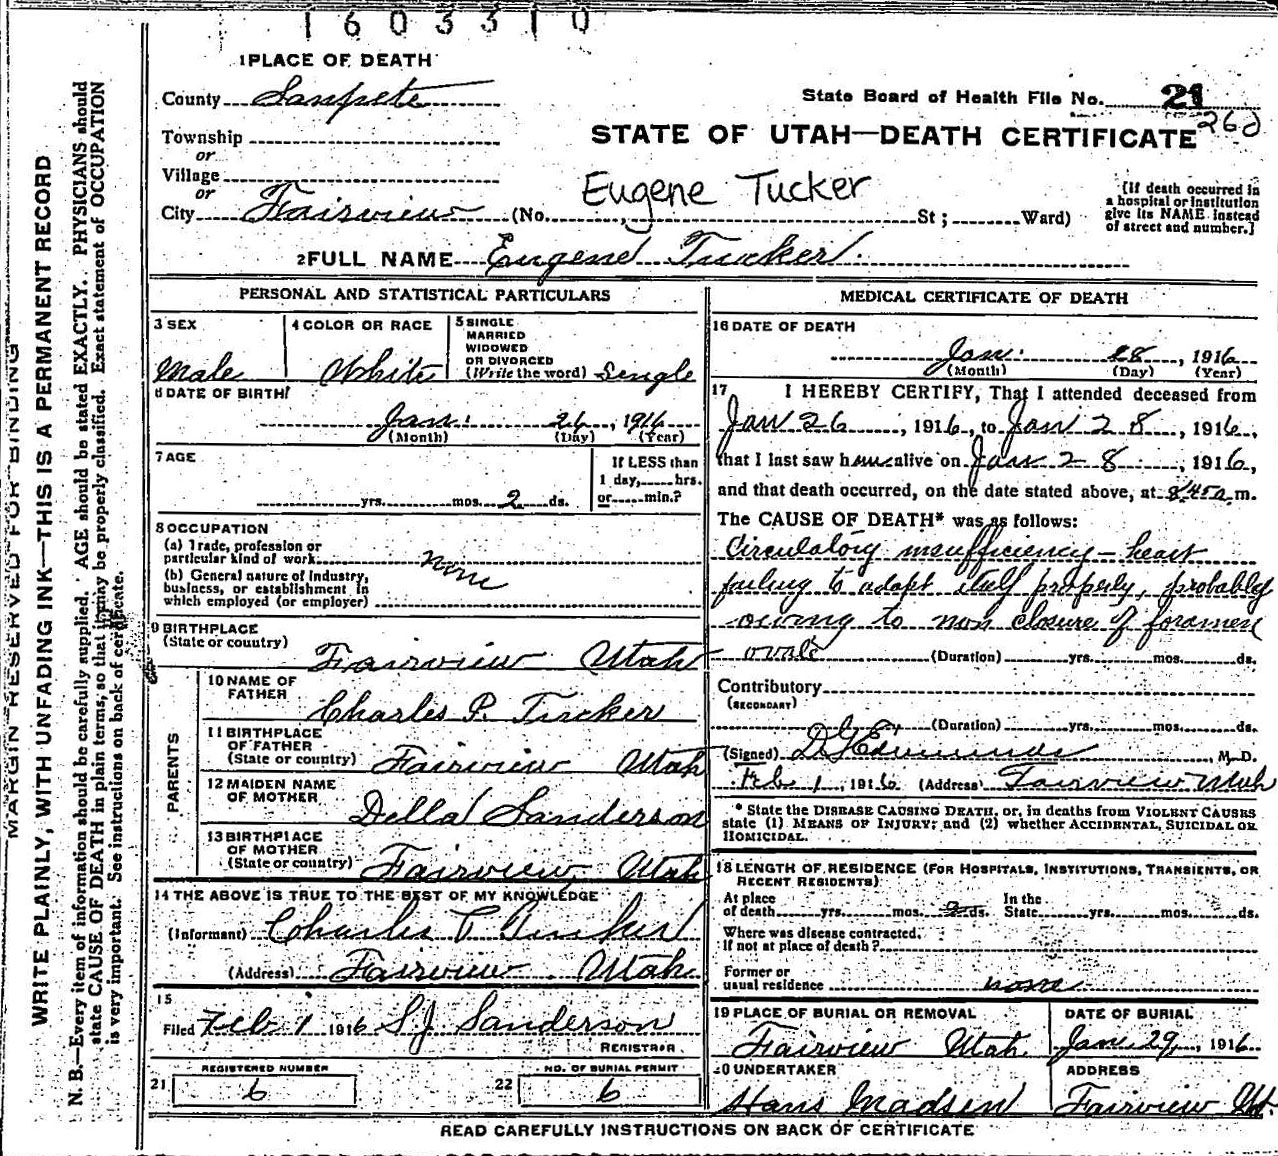 1603310
1 PLACE OF DEATH
County Sanpete
State Board of Health File No. 21
260
Township
or
Village
or
City Fairview (No. , St; Ward)
STATE OF UTAH—DEATH CERTIFICATE
Eugene Tucker
[If death occurred in
a hospital or institution
give its NAME instead
of street and number.]
2 FULL NAME Eugene Tucker.
PERSONAL AND STATISTICAL PARTICULARS
3 SEX
Male
4 COLOR OR RACE
White
5 SINGLE
MARRIED
WIDOWED
OR DIVORCED
(Write the word) Single
6 DATE OF BIRTH
Jan. 26, 1916
(Month) (Day) (Year)
7 AGE
yrs. mos. 2 ds.
If LESS than
1 day, hrs.
or min.?
8 OCCUPATION
(a) Trade, profession or
particular kind of work none
(b) General nature of Industry,
business, or establishment in
which employed (or employer)
9 BIRTHPLACE
(State or country) Fairview Utah
PARENTS
10 NAME OF
FATHER Charles P. Tucker
11 BIRTHPLACE
OF FATHER
(State or country) Fairview Utah
12 MAIDEN NAME
OF MOTHER Della Sanderson
13 BIRTHPLACE
OF MOTHER
(State or country) Fairview, Utah
14 THE ABOVE IS TRUE TO THE BEST OF MY KNOWLEDGE
(Informant) Charles P Tucker
(Address) Fairview Utah.
15
Filed Feb 1 1916 S J Sanderson
REGISTRAR
21 REGISTERED NUMBER
6
22 NO. OF BURIAL PERMIT
6
MEDICAL CERTIFICATE OF DEATH
16 DATE OF DEATH
Jan. 28, 1916
(Month) (Day) (Year)
17 I HEREBY CERTIFY, That I attended deceased from
Jan 26, 1916, to Jan 28, 1916,
that I last saw him alive on Jan 28, 1916,
and that death occurred, on the date stated above, at 8:45 a. m.
The CAUSE OF DEATH* was as follows:
Circulatory insufficiency – heart
failing to adapt itself properly, probably
owing to non closure of foramen
ovale (Duration) yrs. mos. ds.
Contributory
(SECONDARY)
(Duration) yrs. mos. ds.
(Signed) Edmunds M. D.
Feb 1, 1916 (Address) Fairview Utah
* State the DISEASE CAUSING DEATH, or, in deaths from VIOLENT CAUSES
state (1) MEANS OF INJURY; and (2) whether ACCIDENTAL, SUICIDAL OR
HOMICIDAL.
18 LENGTH OF RESIDENCE (FOR HOSPITALS, INSTITUTIONS, TRANSIENTS, OR
RECENT RESIDENTS)
At place
of death yrs. mos. 2 ds.
In the
State yrs. mos. ds.
Where was disease contracted,
If not at place of death?
Former or
usual residence none
19 PLACE OF BURIAL OR REMOVAL
Fairview Utah.
DATE OF BURIAL
Jan. 29, 1916
20 UNDERTAKER
Hans Madsen
ADDRESS
Fairview Ut.
READ CAREFULLY INSTRUCTIONS ON BACK OF CERTIFICATE
MARGIN RESERVED FOR BINDING
WRITE PLAINLY, WITH UNFADING INK—THIS IS A PERMANENT RECORD
N. B.—Every item of information should be carefully supplied. AGE should be stated EXACTLY. PHYSICIANS should
state CAUSE OF DEATH in plain terms, so that it may be properly classified. Exact statement of OCCUPATION
is very important. See instructions on back of certificate.